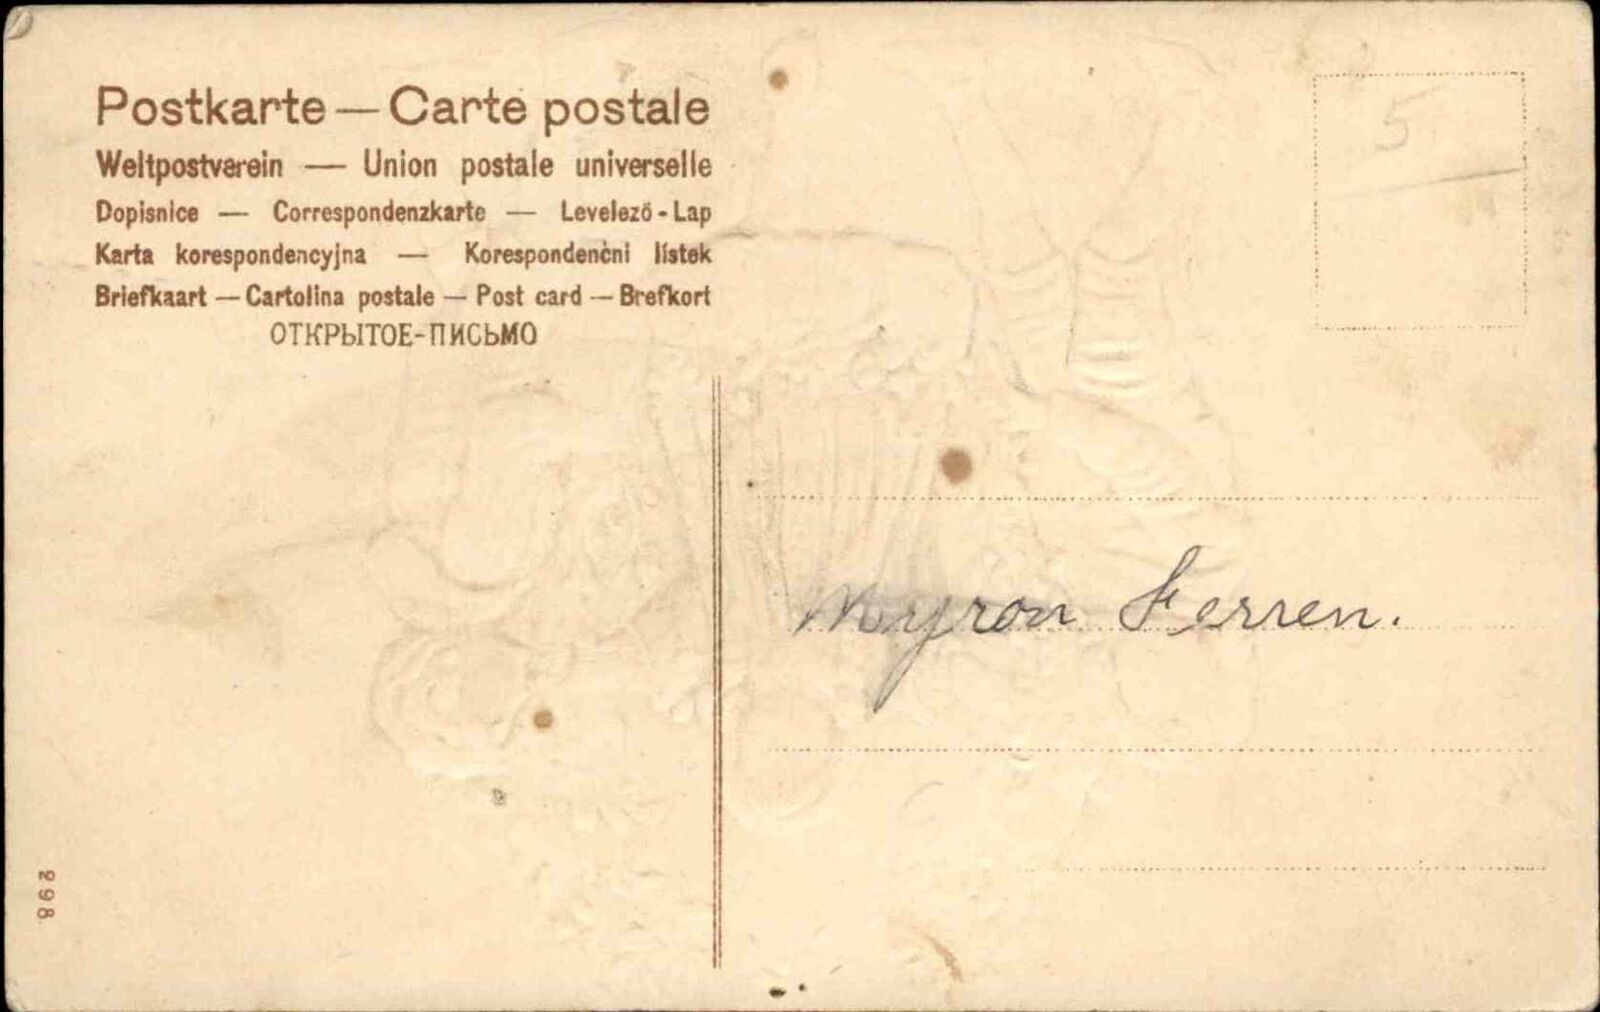 Postkarte — Carte postale
Weltpostverein — Union postale universelle
Dopisnice — Correspondenzkarte — Levelező-Lap
Karta korespondencyjna — Korespondenčni lístek
Briefkaart — Cartolina postale — Post card — Brefkort
ОТКРЫТОЕ-ПИСЬМО
5
Myron Ferren.
298